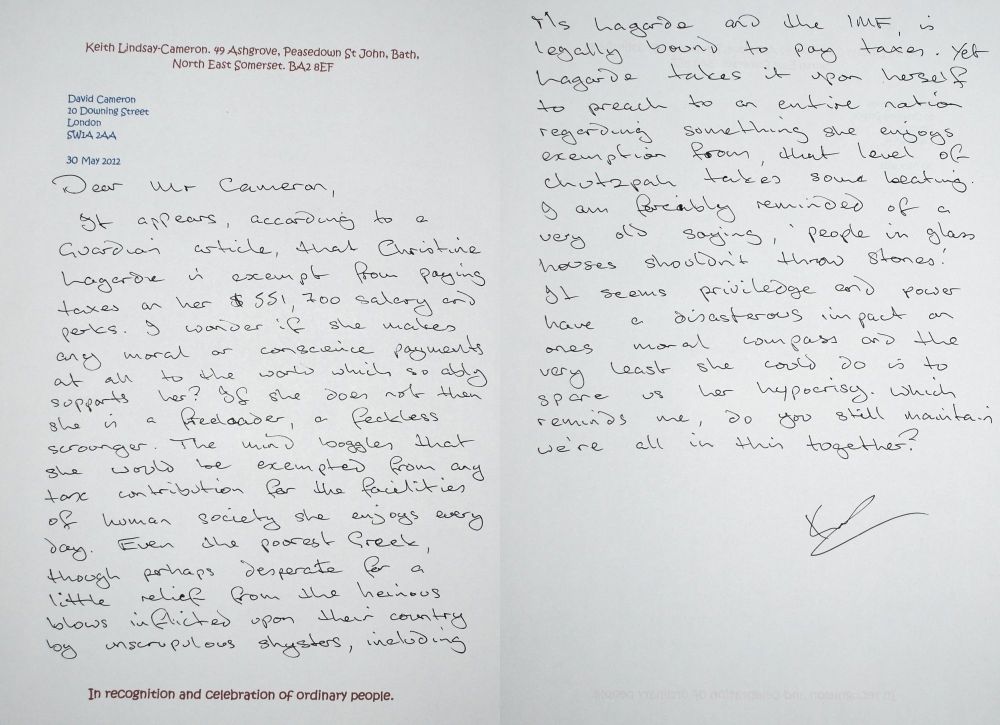 Keith Lindsay-Cameron. 49 Ashgrove, Peasedown St John, Bath,
North East Somerset. BA2 8EF
David Cameron
10 Downing Street
London
SW1A 2AA
30 May 2012
Dear Mr Cameron,
It appears, according to a
Guardian article, that Christine
Lagarde is exempt from paying
taxes on her $551,700 salary and
perks. I wonder if she makes
any moral or conscience payments
at all to the world which so ably
supports her? If she does not then
she is a freeloader, a feckless
scrounger. The mind boggles that
she would be exempted from any
tax contribution for the facilities
of human society she enjoys every
day. Even the poorest Greek,
though perhaps desperate for a
little relief from the heinous
blows inflicted upon their country
by unscrupulous shysters, including
In recognition and celebration of ordinary people.
Ms Lagarde and the IMF, is
legally bound to pay taxes. Yet
Lagarde takes it upon herself
to preach to an entire nation
regarding something she enjoys
exemption from, that level of
chutzpah takes some beating.
I am forcibly reminded of a
very old saying, 'people in glass
houses shouldn't throw stones!'
It seems priviledge and power
have a disasterous impact on
ones moral compass and the
very least she could do is to
spare us her hypocrisy. Which
reminds me, do you still maintain
we're all in this together?